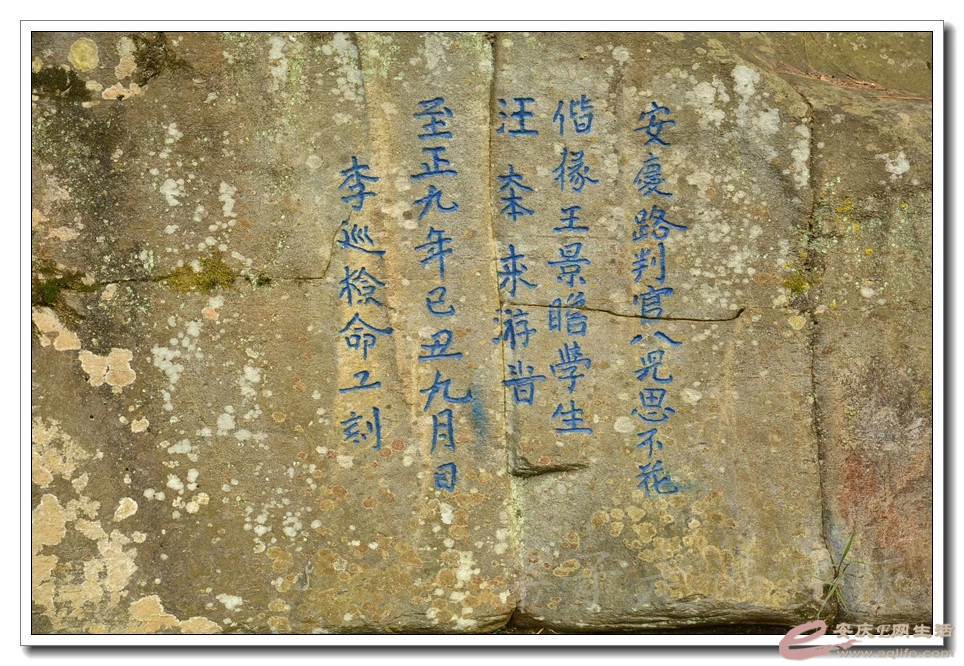 安慶路判官八児思不花
偕掾王景瞻學生
汪夲来游旹
至正九年己丑九月日
李巡檢命工刻
安庆E网生活
www.aqlife.com